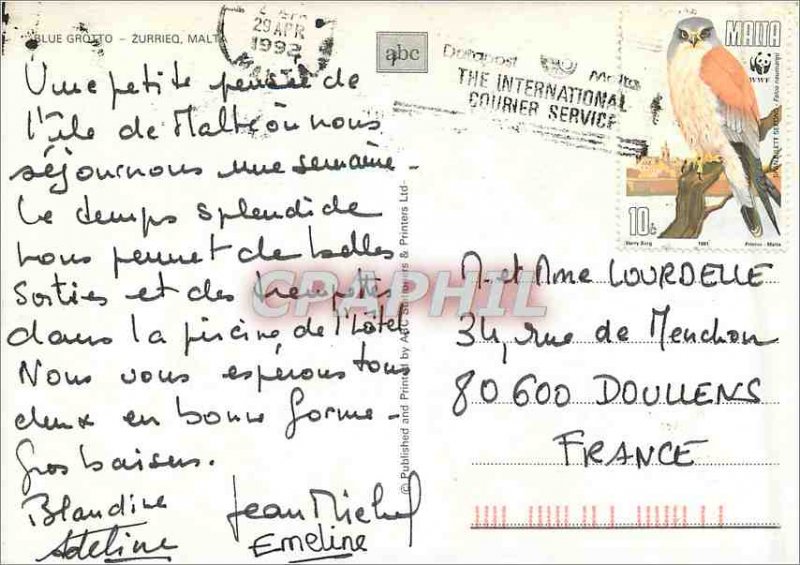 BLUE GROTTO – ŻURRIEQ, MALTA
29 APR
1992
MALTA
abc
Datapost
Malta
THE INTERNATIONAL
COURIER SERVICE
MALTA
WWF
10c
1991
Printex - Malta
Une petite pensée de
l'île de Malte où nous
séjournons une semaine -
Le temps splendide
nous permet de belles
sorties et des trempettes
dans la piscine de l'hôtel
Nous vous espérons tous
deux en bonne forme -
Gros baisers.
Blandine Jean Michel
Adeline Emeline
© Published and Printed by ABC Stationers & Printers Ltd-
CPAPHIL
M. et Mme LOURDELLE
34, rue de Menchon
80600 DOULLENS
FRANCE